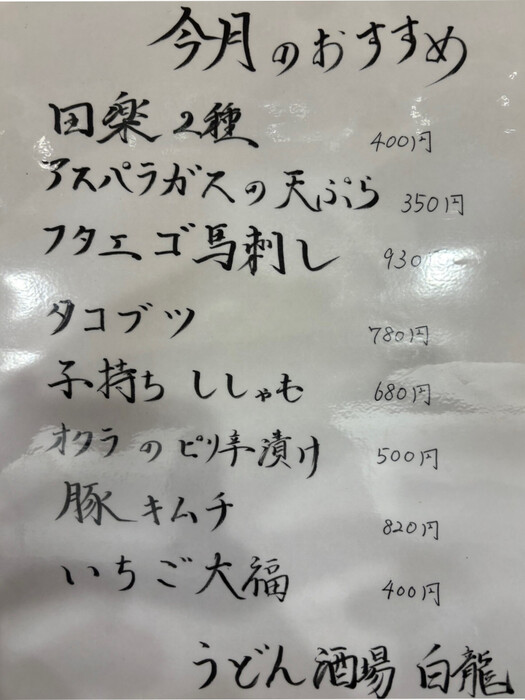 今月のおすすめ
田楽2種 400円
アスパラガスの天ぷら 350円
フタエゴ馬刺し 930
タコブツ 780円
子持ちししゃも 680円
オクラのピリ辛漬け 500円
豚キムチ 820円
いちご大福 400円
うどん酒場 白龍